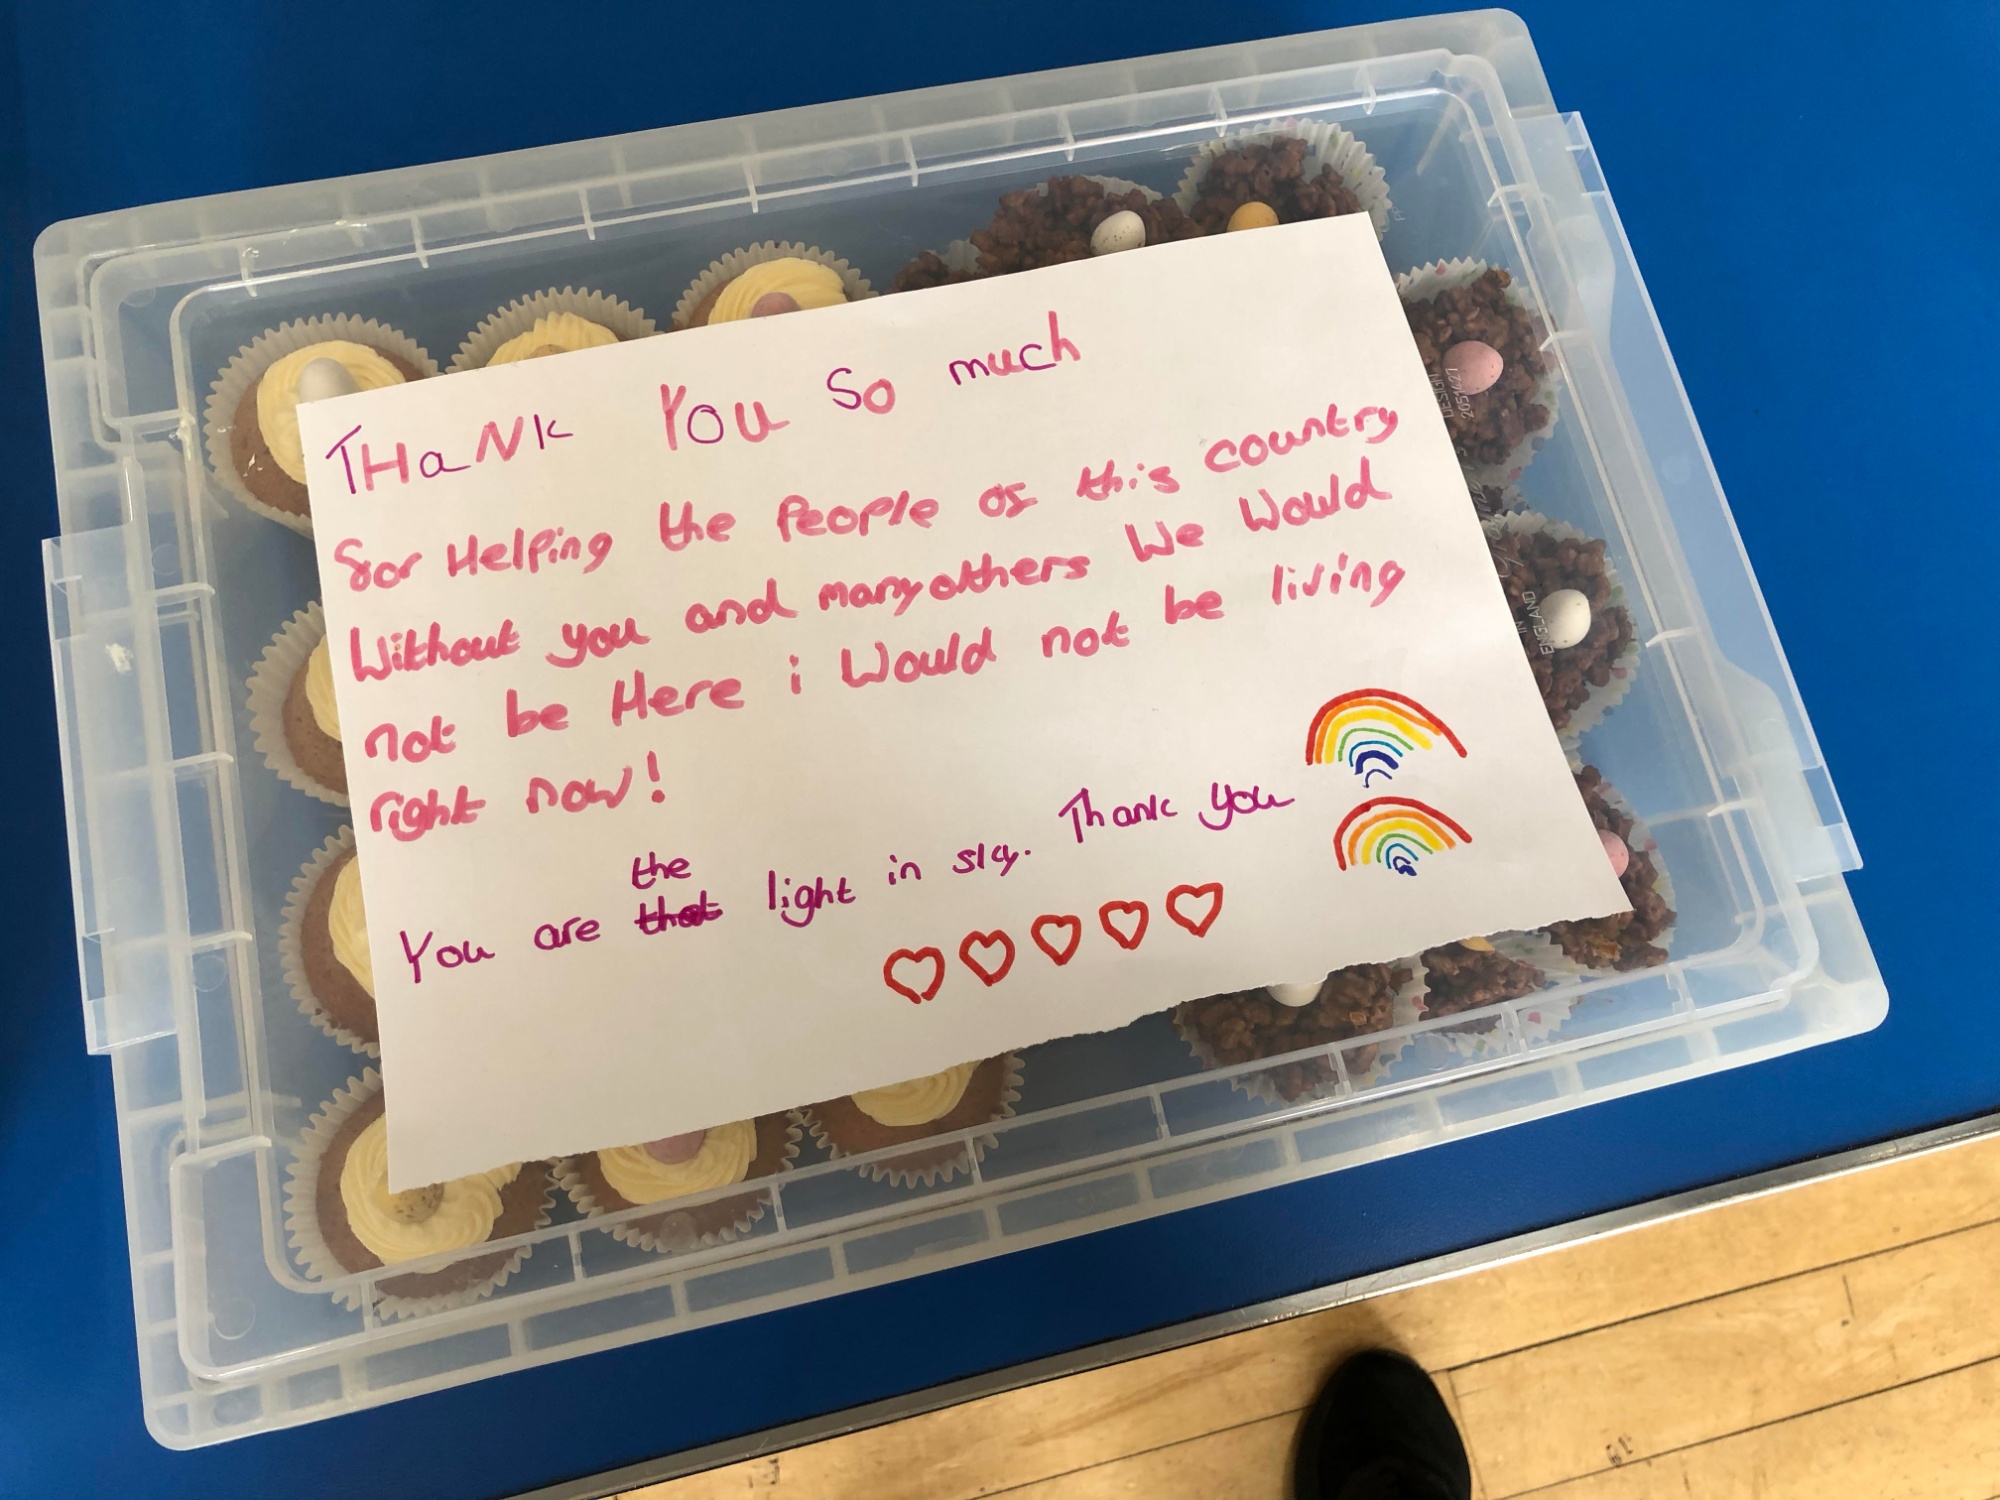 THaNK YOU So much
for Helping the People of this country
Without you and many others We Would
not be Here i Would not be living
right now!
the
You are that light in sky. Thank you
DESIGN
2051427
IN
ENGLAND